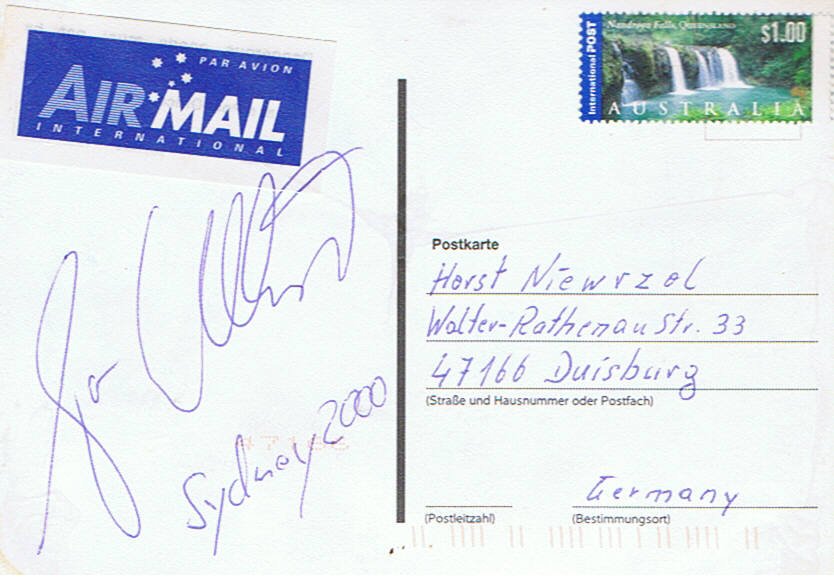 PAR AVION
AIR MAIL
INTERNATIONAL
Sydney 2000
47166
International POST
Nandroya Falls, QUEENSLAND
$1.00
AUSTRALIA
Postkarte
Horst Niewrzol
Walter-Rathenau Str. 33
47166 Duisburg
(Straße und Hausnummer oder Postfach)
Germany
(Postleitzahl)
(Bestimmungsort)